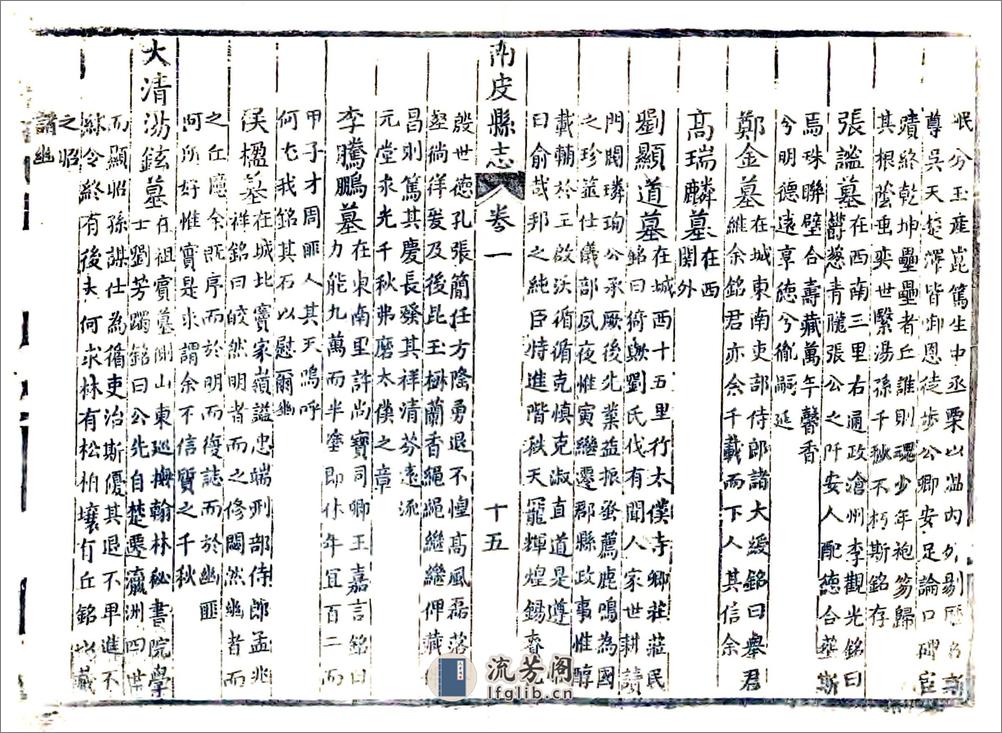 岷分玉産崑篤生中丞栗山温内外剔歷名新
尊吴天楚澤皆卸恩徒步公卿安足論口碑宦
蹟終乾坤壘壘者丘誰則魂少年袍笏歸
其根蔭垂奕世繄湯孫千秋不朽斯銘存
張謐墓在西南三里右通政滄州李觀光銘曰
鬱葱青朧張公之阡安人配德合葬斯
焉珠聯璧合壽藏萬午馨香
兮明德遠享德兮徹嗣延
鄭金墓在城東南吏部侍郎諸大綬銘曰舉君
維余銘君亦余千載而下人其信余
高瑞麟墓在西關外
劉顯道墓在城西十五里行太僕寺卿莊莊民
銘曰猗歟劉氏代有聞人家世耕讀
門閥璘珣公承厥後先業益振蚤薦鹿鳴為國
之珍筮仕儀部夙夜惟寅繼遷郡縣政事惟醇
載輔於王啟沃循循克慎克淑直道是遵
曰俞哉邦之純臣特進階秩天寵輝煌錫春
南皮縣志 卷一 十五
殷世德孔張簡任方隆勇退不惶高風磊落
壑徜徉爰及後昆玉樹蘭香繩繩繼繼俾藏
昌則篤其慶長發其祥清芬遠流
元堂求光千秋弗磨太僕之章
李騰鵬墓在東南里許尚寶司卿王嘉言銘曰
力能九萬而半塗即休年宜百二而
甲子才周匪人其天嗚呼
何七我銘其石以慰爾幽
湯楹墓在城北竇家嶺謚忠端刑部侍郎孟兆
祥銘曰皎然明者而之修闊然幽者而
之丘應余既序而於明而復誌而於幽匪
阿所好惟實是求謂余不信質之千秋
大清湯鉉墓在祖實墓側山東巡撫翰林秘書院學
士劉芳躅銘曰公先自楚遷瀛洲四世
而顯昭孫謀仕為循吏治斯優其退不早進不
絿令終有後夫何求林有松柏壤有丘銘以藏
之昭
諸幽